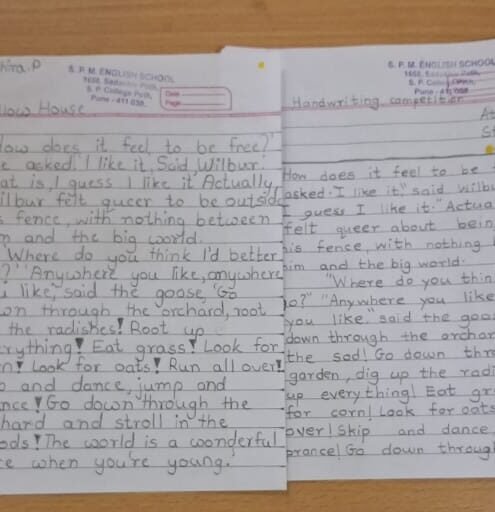 hira.P
S. P. M. ENGLISH SCHOOL
S. P. College Path,
Pune - 411 030.
Date
Page
llow House
How does it feel to be free?'
e asked. 'I like it, Said, Wilbur.
at is, I guess I like it' Actually,
ilbur felt queer to be outside
s fence, with nothing between
m and the big world.
'Where do you think I'd better
?' 'Anywhere you like, anywhere
u like,' said the goose, 'Go
wn through the orchard, root
the radishes! Root up
erything! Eat grass! Look for
n! Look for oats! Run all over!
p and dance, jump and
nce! Go down through the
hard and stroll in the
ods! The world is a woonderful
ce when you're young.'
S. P. M. ENGLISH SCHOOL
S. P. College Path,
Pune - 411 030.
Handwriting competition
At
S
How does it feel to be
asked. I like it," said Wilb
I guess I like it." Actua
felt queer about bein
his fence, with nothing
him and the big world.
"Where do you thin
go?" "Anywhere you like
you like." said the goos
down through the orchar
the sod! Go down thro
garden, dig up the radi
up everything! Eat gr
for corn! Look for oats
over! Skip and dance,
prance! Go down through